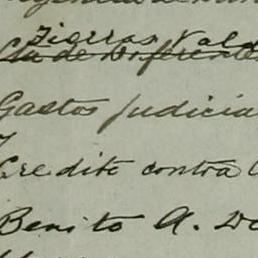 Tierras Vald
Cta de Diferente
Gastos Judicia
y
Credito contra
Benito A. Do